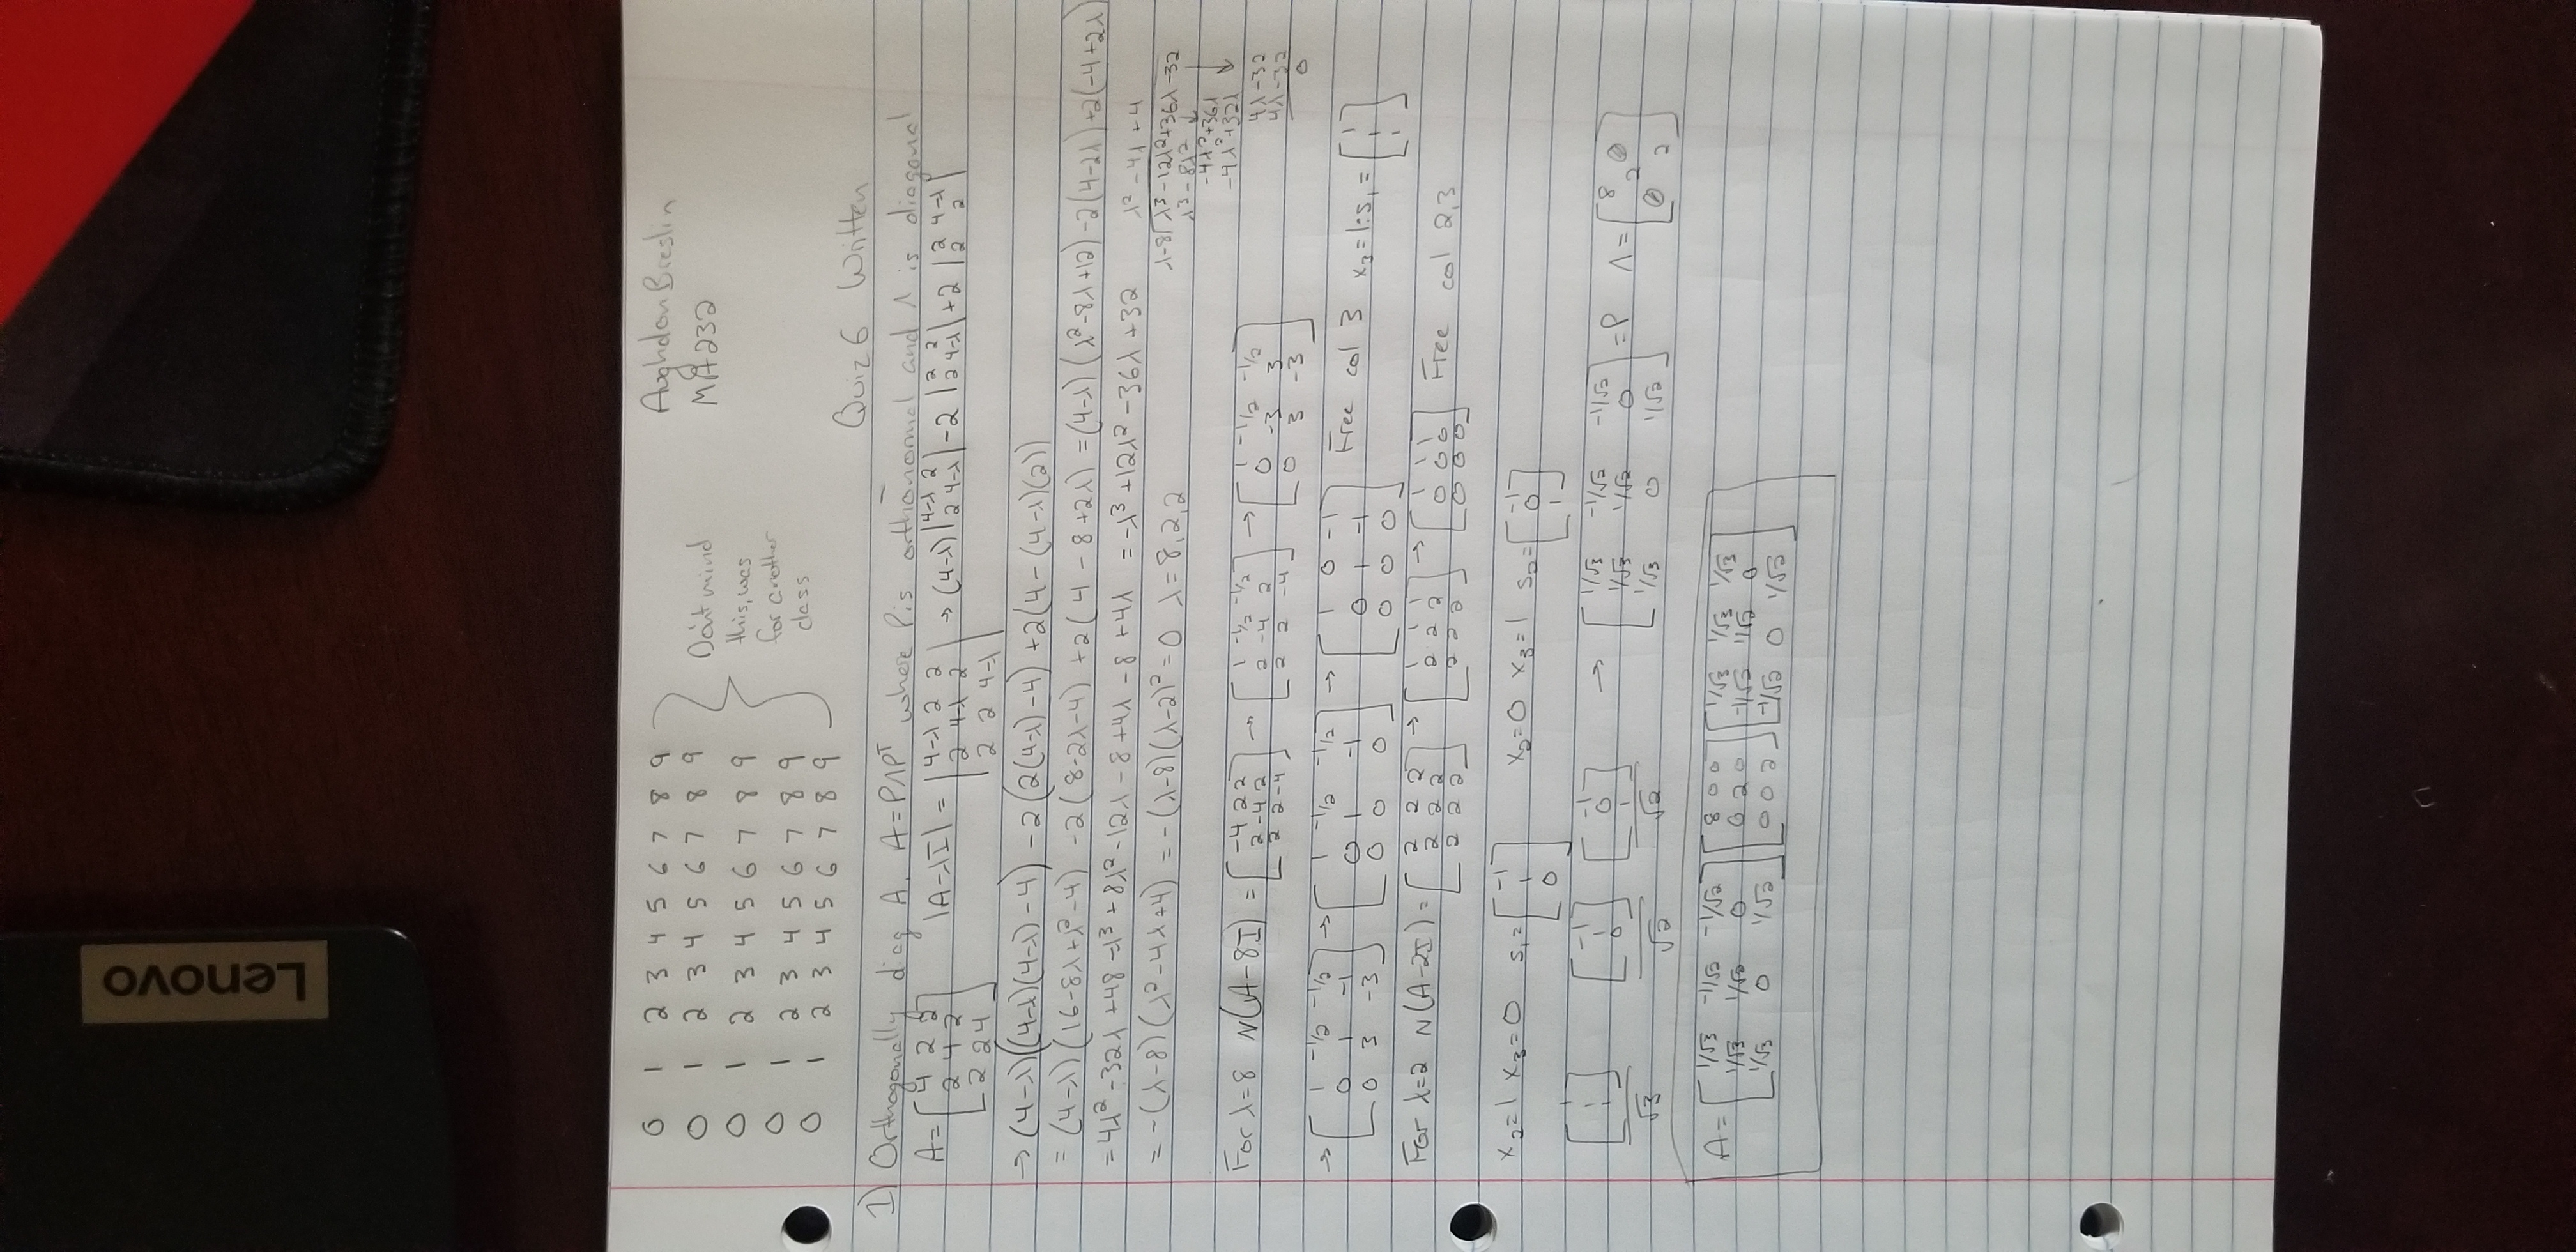 Lenovo
0 1 2 3 4 5 6 7 8 9
0 1 2 3 4 5 6 7 8 9
0 1 2 3 4 5 6 7 8 9
0 1 2 3 4 5 6 7 8 9
0 1 2 3 4 5 6 7 8 9
Don't mind
this, was
for another
class
Aughdon Breslin
MA232
Quiz 6 Written
1) Orthogonally diag A. A=PΛPᵀ where P is orthonormal and Λ is diagonal
A=[4 2 2; 2 4 2; 2 2 4] |A-λI| = |4-λ 2 2; 2 4-λ 2; 2 2 4-λ| → (4-λ)|4-λ 2; 2 4-λ| -2|2 2; 2 4-λ| +2|2 4-λ; 2 2|
→ (4-λ)((4-λ)(4-λ)-4) -2(2(4-λ)-4) +2(4-(4-λ)(2))
= (4-λ)(16-8λ+λ²-4) -2(8-2λ-4) +2(4-8+2λ) = (4-λ)(λ²-8λ+12) -2(4-2λ) +2(-4+2λ)
= 4λ²-32λ+48-λ³+8λ²-12λ-8+4λ-8+4λ = -λ³+12λ²-36λ+32
= -(λ-8)(λ²-4λ+4) = -(λ-8)(λ-2)²=0 λ=8,2,2
λ²-4λ+4
λ-8 λ³-12λ²+36λ-32
λ³-8λ² ↓
-4λ²+36λ
-4λ²+32λ ↓
4λ-32
4λ-32
0
For λ=8 N(A-8I) = [-4 2 2; 2 -4 2; 2 2 -4] → [1 -1/2 -1/2; 2 -4 2; 2 2 -4] → [1 -1/2 -1/2; 0 -3 3; 0 3 -3]
→ [1 -1/2 -1/2; 0 1 -1; 0 3 -3] → [1 -1/2 -1/2; 0 1 -1; 0 0 0] → [1 0 -1; 0 1 -1; 0 0 0] Free col 3 x₃=1: s₁=[1; 1; 1]
For λ=2 N(A-2I) = [2 2 2; 2 2 2; 2 2 2] → [1 1 1; 2 2 2; 2 2 2] → [1 1 1; 0 0 0; 0 0 0] Free col 2,3
x₂=1 x₃=0 s₁=[-1; 1; 0] x₂=0 x₃=1 s₂=[-1; 0; 1]
[1; 1; 1]/√3 [-1; 1; 0]/√2 [-1; 0; 1]/√2 → [1/√3 -1/√2 -1/√2; 1/√3 1/√2 0; 1/√3 0 1/√2] =P Λ=[8 0; 2; 0 2]
A=[1/√3 -1/√2 -1/√2; 1/√3 1/√2 0; 1/√3 0 1/√2][8 0 0; 0 2 0; 0 0 2][1/√3 1/√3 1/√3; -1/√2 1/√2 0; -1/√2 0 1/√2]